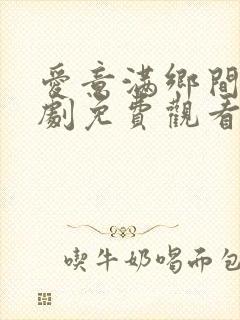 愛意滿鄉間
劇免費觀看
喫牛奶喝而包